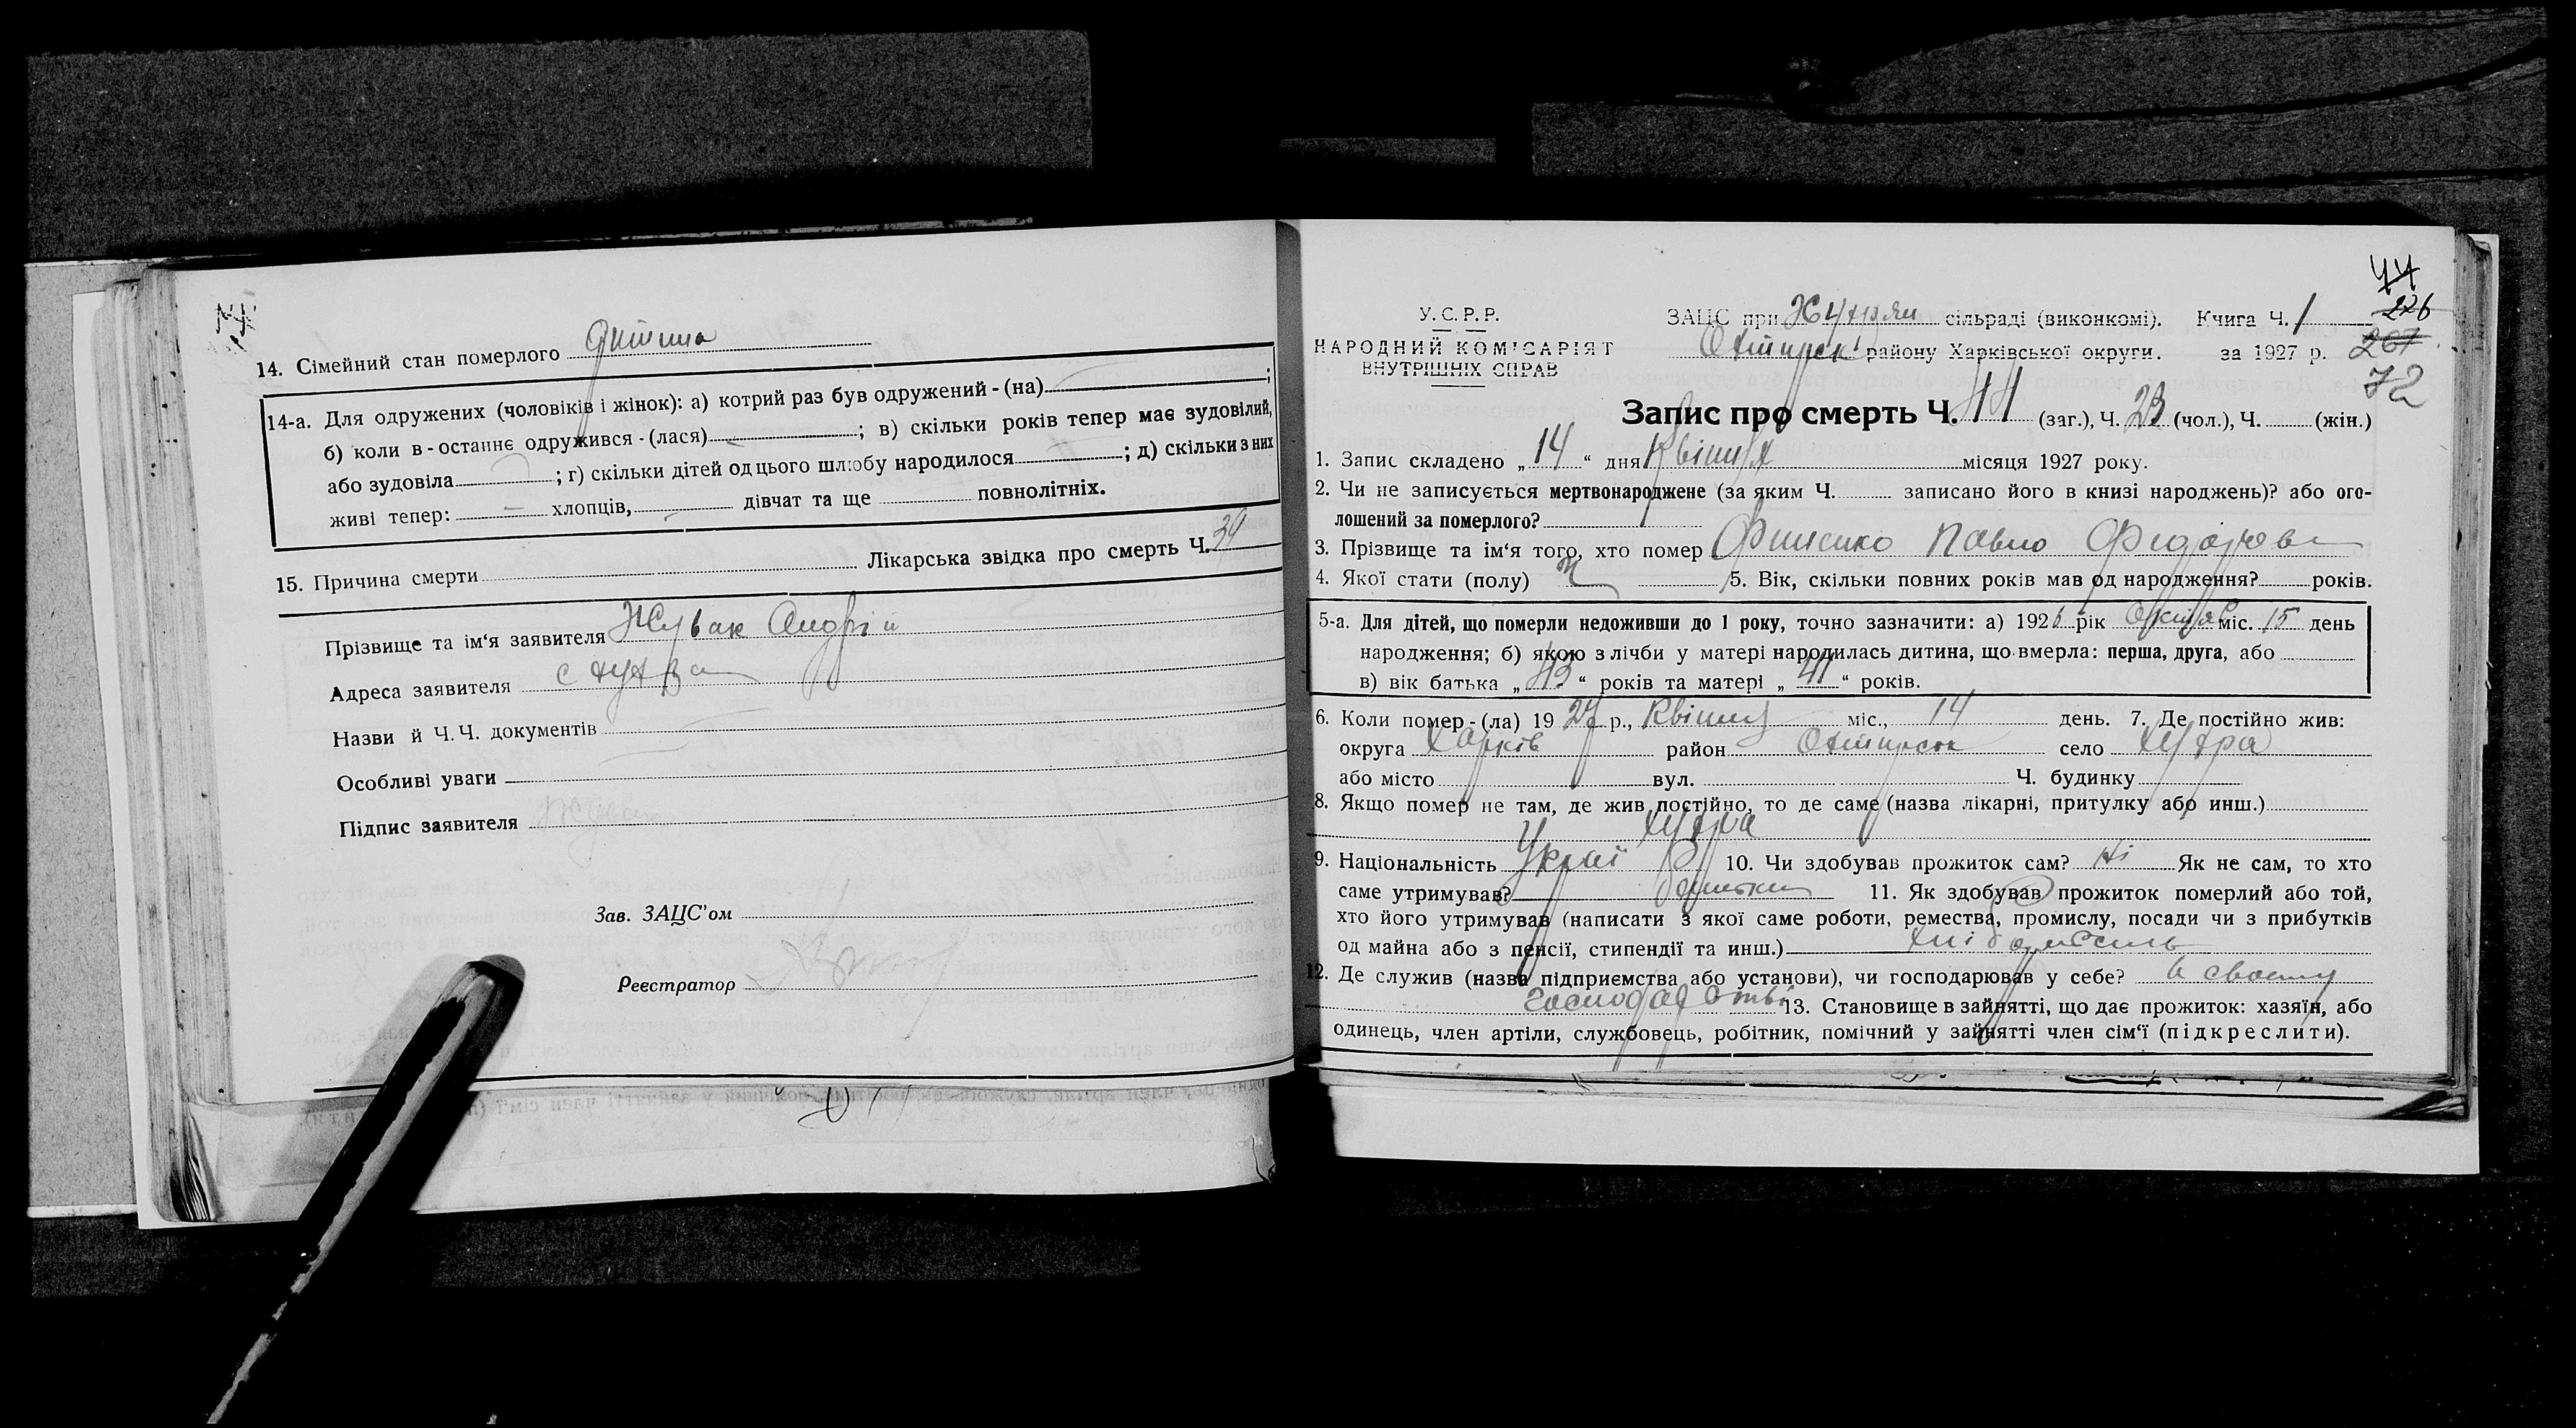 14. Сімейний стан померлого дитина
14-а. Для одружених (чоловіків і жінок): а) котрий раз був одружений - (на) ;
б) коли в - останнє одружився - (лася) ; в) скільки років тепер має зудовілий,
або зудовіла ; г) скільки дітей од цього шлюбу народилося ; д) скільки з них
живі тепер: — хлопців, — дівчат та ще повнолітніх.
15. Причина смерти Лікарська звідка про смерть Ч. 34
Прізвище та ім‘я заявителя Жувак Андрій
Адреса заявителя с
Назви й Ч.Ч. документів —
Особливі уваги —
Підпис заявителя Жувак
Зав. ЗАЦС’ом
Реєстратор
44
226
267
72
У.С.Р.Р.
НАРОДНИЙ КОМІСАРІЯТ
ВНУТРІШНІХ СПРАВ
ЗАЦС при сільраді (виконкомі). Книга Ч. 1
району Харківської округи. за 1927 р.
Запис про смерть Ч. 44 (заг.), Ч. 23 (чол.), Ч. (жін.)
1. Запис складено „ 14 “ дня Квітня місяця 1927 року.
2. Чи не записується мертвонароджене (за яким Ч. записано його в книзі народжень)? або ого-
лошений за померлого?
3. Прізвище та ім‘я того, хто помер Павло Федорович
4. Якої стати (полу) ч 5. Вік, скільки повних років мав од народження? років.
5-а. Для дітей, що померли недоживши до 1 року, точно зазначити: а) 1926 рік міс. 15 день
народження; б) якою з лічби у матері народилась дитина, що вмерла: перша, друга, або
в) вік батька „ 43 “ років та матері „ 41 “ років.
6. Коли помер - (ла) 1927 р., Квітня міс., 14 день. 7. Де постійно жив:
округа Харків район село
або місто вул. Ч. будинку
8. Якщо помер не там, де жив постійно, то де саме (назва лікарні, притулку або инш.)
9. Національність Украї 10. Чи здобував прожиток сам? Ні Як не сам, то хто
саме утримував? батьки 11. Як здобував прожиток померлий або той,
хто його утримував (написати з якої саме роботи, ремества, промислу, посади чи з прибутків
од майна або з пенсії, стипендії та инш.) хліборобель
12. Де служив (назва підприємства або установи), чи господарював у себе? в своєму
господарстві 13. Становище в занятті, що дає прожиток: хазяїн, або
одинець, член артіли, службовець, робітник, помічний у занятті член сім‘ї (підкреслити).